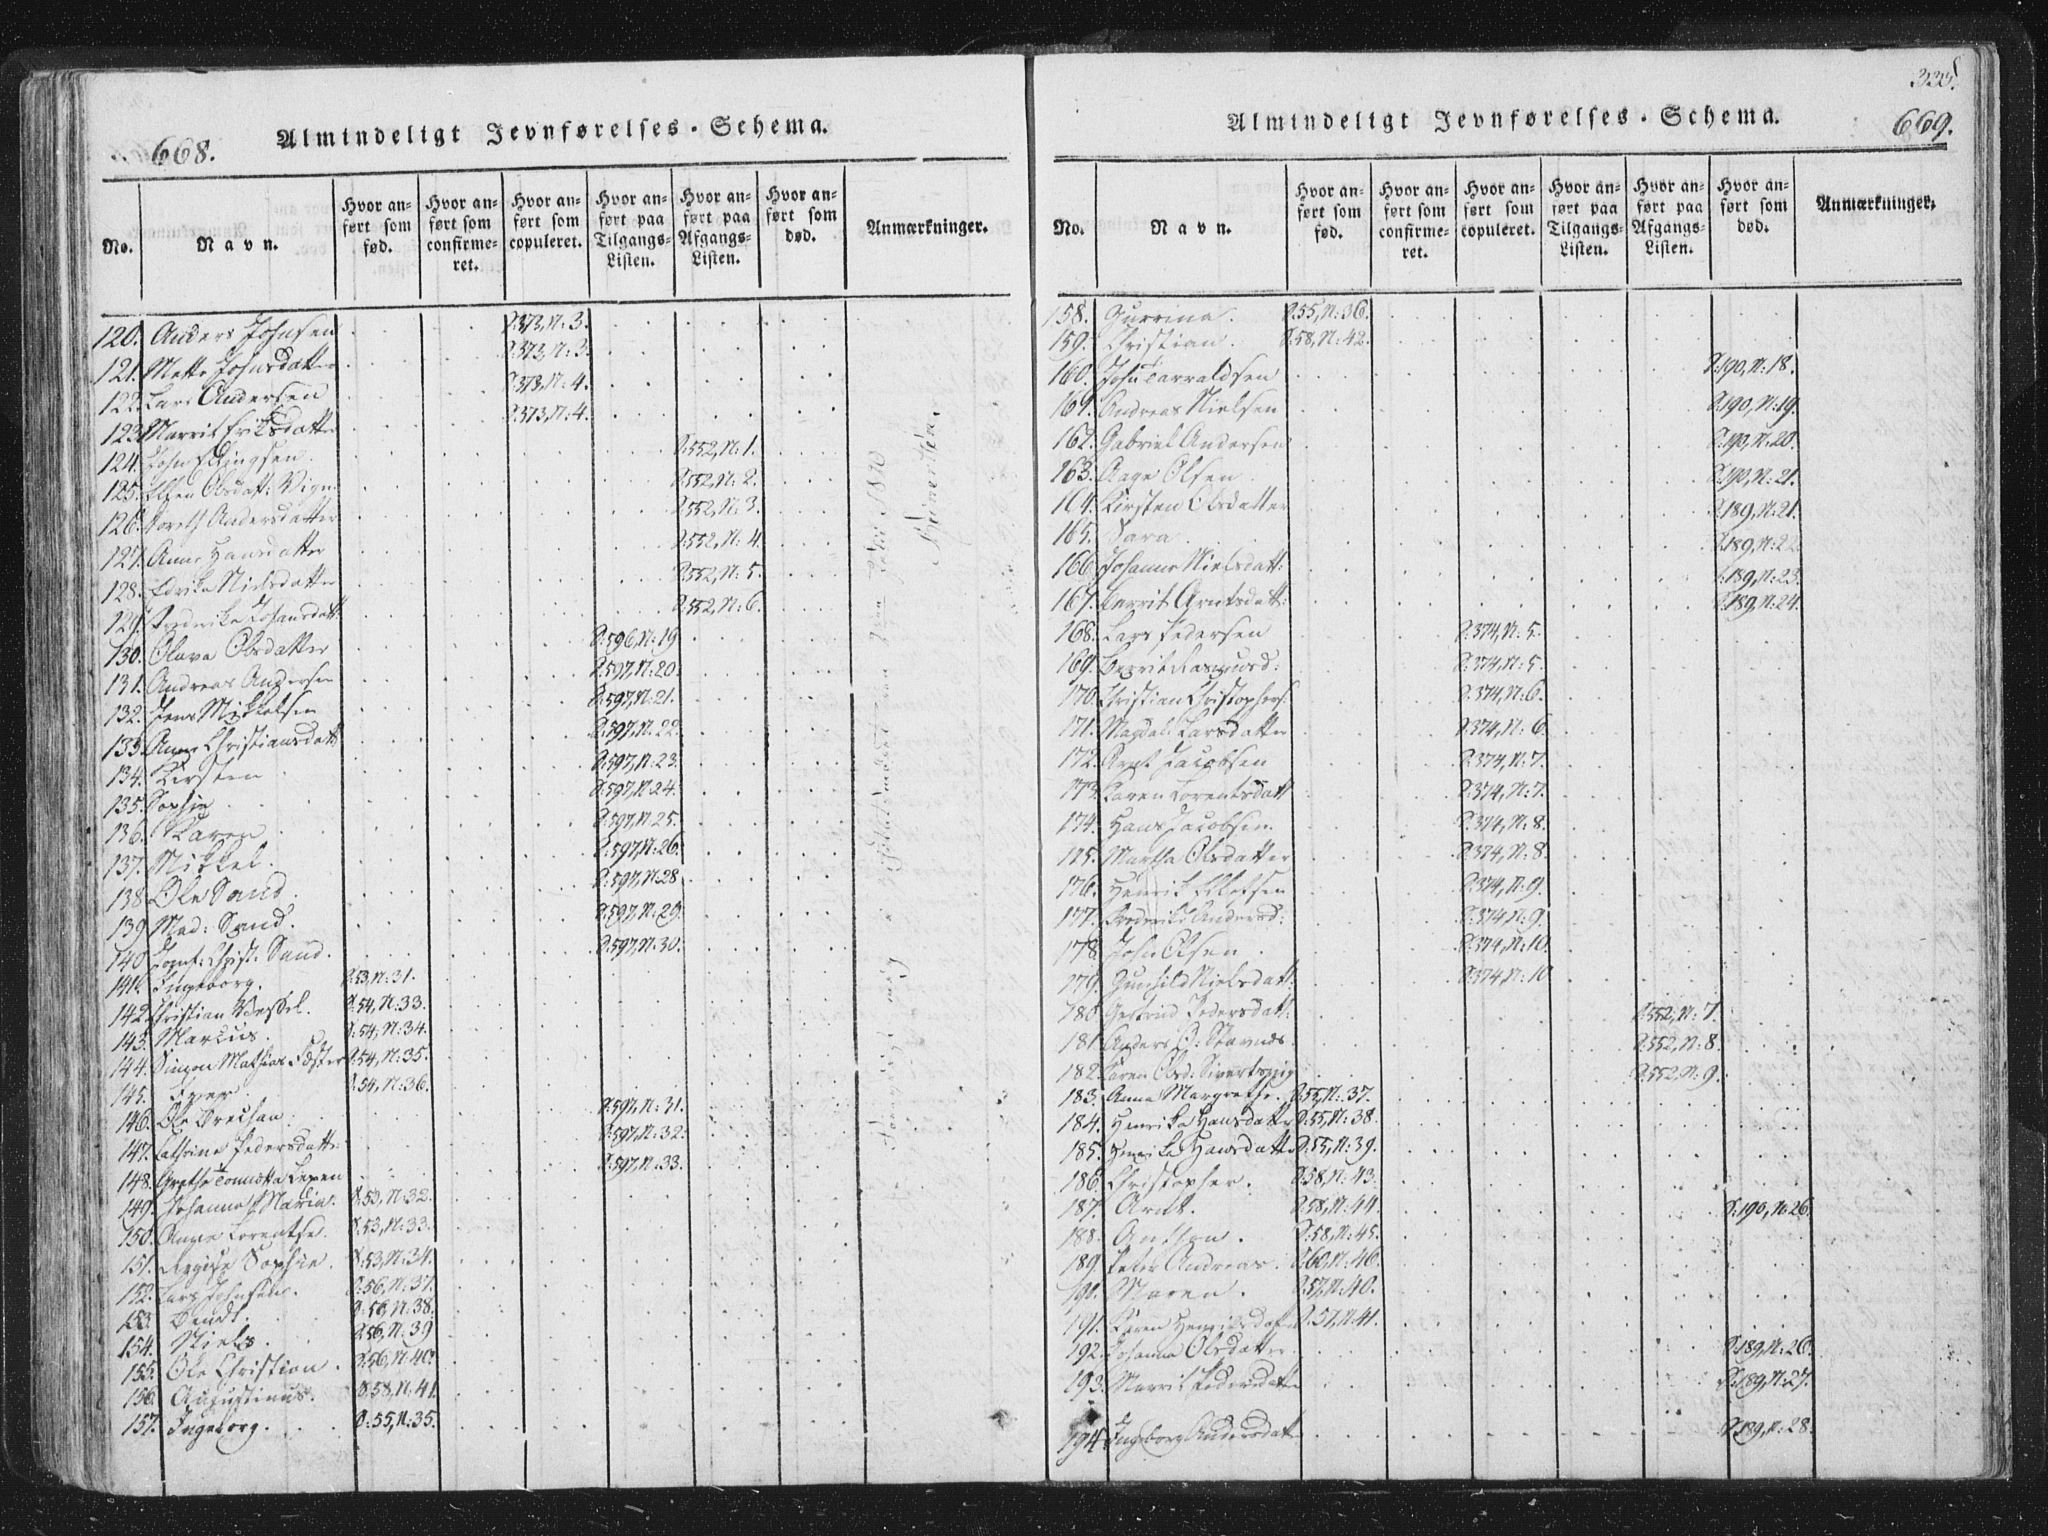 668. Almindeligt Jevnførelses-Schema.
No. Navn. Hvor anført som fød. Hvor anført som confirmeret. Hvor anført som copuleret. Hvor anført paa Tilgangs-Listen. Hvor anført paa Afgangs-Listen. Hvor anført som død. Anmærkninger.
120. Anders Johnsen P:373, N:3.
121. Mette Johnsdatter P:373, N:3.
122. Lars Andersen P:373, N:4.
123. Marrit Eriksdatter P:373, N:4.
124. John Ellingsen. P:552, N:1.
125. Ellen Olsdatt: P:552, N:2.
126. Doreth Andersdatter P:552, N:3.
127. Anne Hansdatter P:552, N:4.
128. Nielsdatter P:552, N:5.
129. Fredrika Johansdatt: P:552, N:6.
130. Olava Olsdatter P:596, N:19
131. Andreas Andersen P:597, N:20.
132. Jens Mikkelsen P:597, N:21.
133. Anne Christiansdatt P:597, N:22.
134. Kirsten P:597, N:23.
135. Sophie P:597, N:24.
136. Maren P:597, N:25.
137. Mikkel. P:597, N:26.
138. Ole Sand. P:597, N:28
139. Mad: Sand. P:597, N:29.
140. Jomf: Christ: Sand. P:597, N:30.
141. Ingeborg. P:53, N:31.
142. Christian Wessel. P:54, N:33.
143. Marcus. P:54, N:34.
144. Simon Mathias P:54, N:35.
145. Iver P:54, N:36.
146. Ole P:597, N:31.
147. Cathrine Pedersdatter P:597, N:32.
148. Grethe P:597, N:33.
149. Johanna Maria. P:53, N:32.
150. Anne P:53, N:33.
151. Sophie. P:53, N:34.
152. Lars Johnsen. P:56, N:37.
153. Bendt. P:56, N:38.
154. Niels. P:56, N:39
155. Ole Christian. P:56, N:40.
156. Augustinus. P:58, N:41.
157. Ingeborg. P:55, N:35.
335.
Almindeligt Jevnførelses-Schema. 669.
No. Navn. Hvor anført som fød. Hvor anført som confirmeret. Hvor anført som copuleret. Hvor anført paa Tilgangs-Listen. Hvor anført paa Afgangs-Listen. Hvor anført som død. Anmærkninger.
158. Gurrina. P:55, N:36.
159. Christian. P:58, N:42.
160. John Tarraldsen P:190, N:18.
161. Andreas Nielsen P:190, N:19.
162. Gabriel Andersen P:190, N:20.
163. Aage Olsen P:190, N:21.
164. Kirsten Olsdatter P:189, N:21.
165. Sara P:189, N:22.
166. Johanna Nielsdatt: P:189, N:23.
167. Berrit Arntsdatt: P:189, N:24.
168. Lars Pedersen P:374, N:5.
169. Berrit Rasmusd: P:374, N:5.
170. Christian Christophers. P:374, N:6.
171. Magdal: Larsdatter P:374, N:6.
172. Arnt Jacobsen P:374, N:7.
173. Karen Lorentsdatt P:374, N:7.
174. Hans Jacobsen. P:374, N:8.
175. Martha Olsdatter P:374, N:8.
176. Henrik P:374, N:9.
177. Fredrike Andersd: P:374, N:9.
178. John Olsen P:374, N:10.
179. Gunhild Nielsdatt: P:374, N:10
180. Pedersdatt: P:552, N:7.
181. Anders P:552, N:8.
182. Karen Olsd: P:552, N:9.
183. Anna Margrethe. P:55, N:37.
184. Henrika Hansdatter P:55, N:38.
185. Hansdatter P:55, N:39.
186. Christopher. P:58, N:43.
187. Arnt. P:58, N:44. P:190, N:26.
188. Anthon. P:58, N:45.
189. Peter Andreas. P:60, N:46.
190. Maren. P:57, N:40.
191. Karen P:57, N:41.
192. Johanna Olsdatter P:189, N:26.
193. Marrit Pedersdatter P:189, N:27.
194. Ingeborg Andersdatt P:189, N:28.